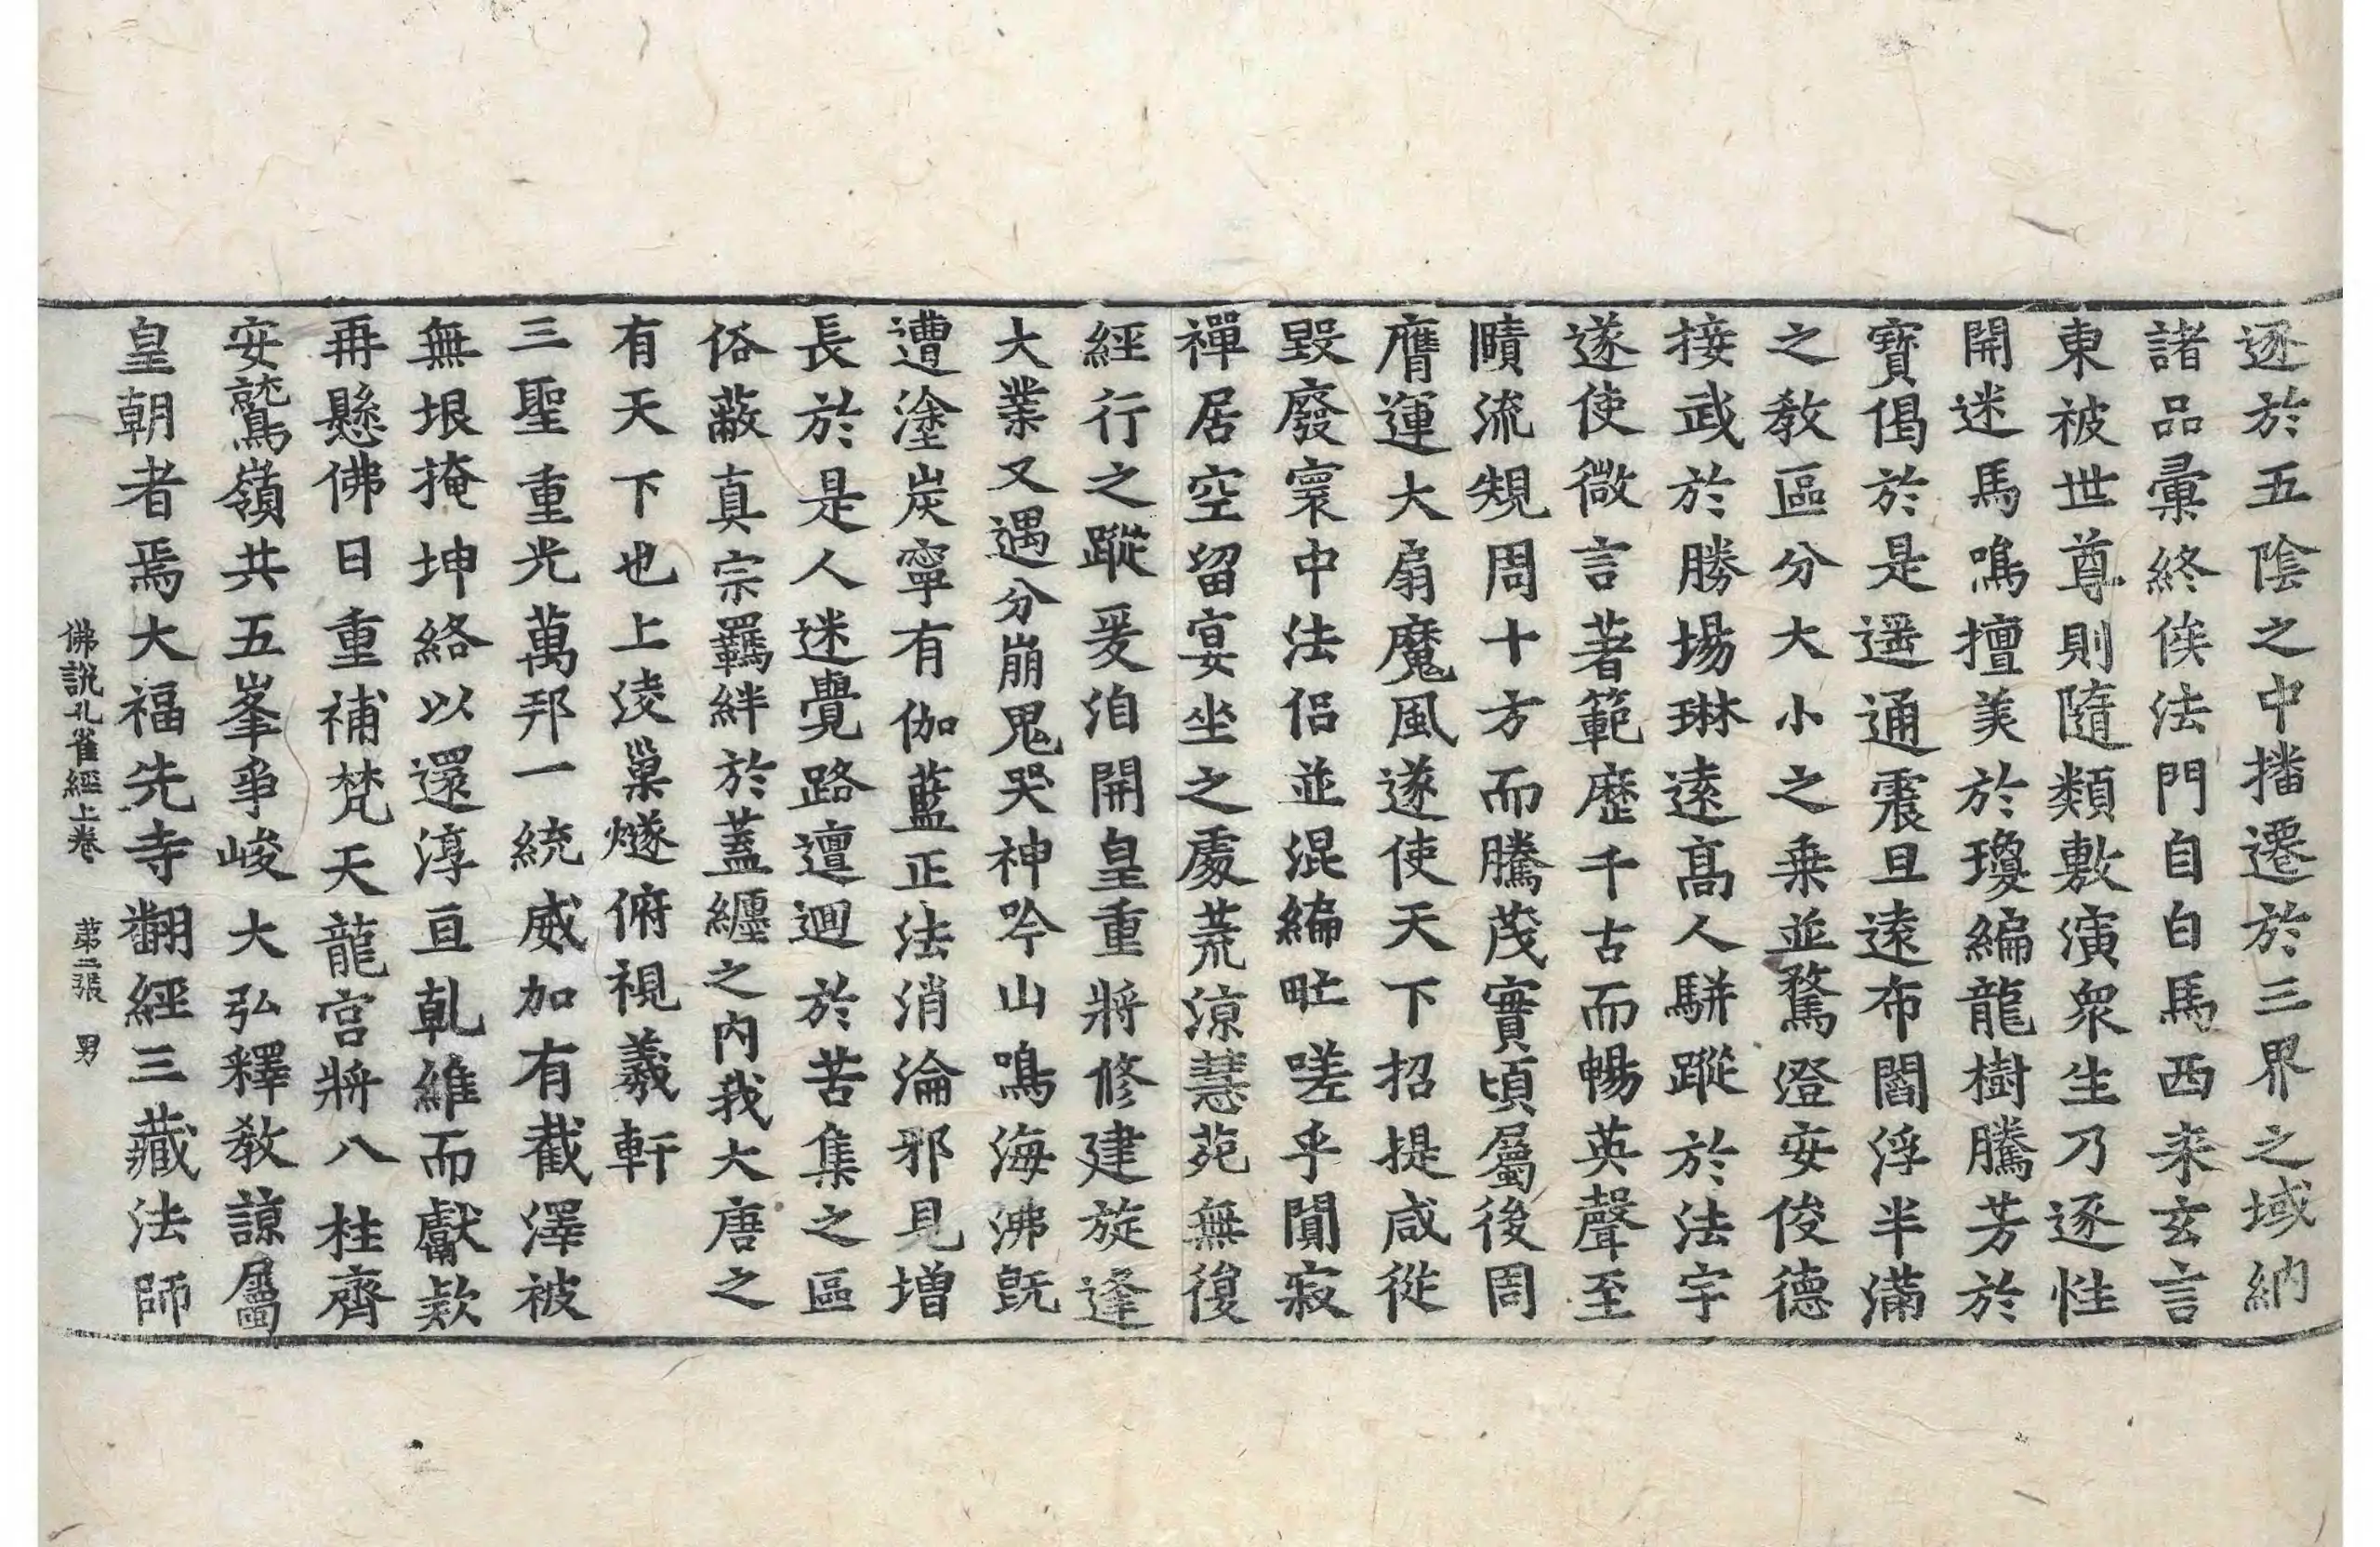 逐於五陰之中播遷於三界之域納
諸品彙終俟法門自白馬西来玄言
東被世尊則隨類敷演衆生乃逐性
開迷馬鳴擅美於瓊編龍樹騰芳於
寶偈於是遥通震旦遠布閻浮半滿
之教區分大小之乗並騖澄安俊德
接武於勝場琳遠髙人駢蹤於法宇
遂使微言著範歷千古而暢英聲至
賾流規周十方而騰茂實頃屬後周
膺運大扇魔風遂使天下招提咸從
毀廢寰中法侶並混編甿嗟乎閴寂
禪居空留宴坐之處荒涼慧苑無復
經行之蹤爰洎開皇重將修建旋逢
大業又遇分崩鬼哭神吟山鳴海沸旣
遭塗炭寧有伽藍正法消淪邪見增
長於是人迷覺路邅迴於苦集之區
俗蔽真宗羈絆於蓋纏之內我大唐之
有天下也上淩巢燧俯視羲軒
三聖重光萬邦一統威加有截澤被
無垠掩坤絡以還淳亘乹維而獻款
再懸佛日重補梵天龍宮將八柱齊
安鷲嶺共五峯爭峻大弘釋教諒屬
皇朝者焉大福先寺翻經三藏法師
佛說孔雀經上卷 第二張 男